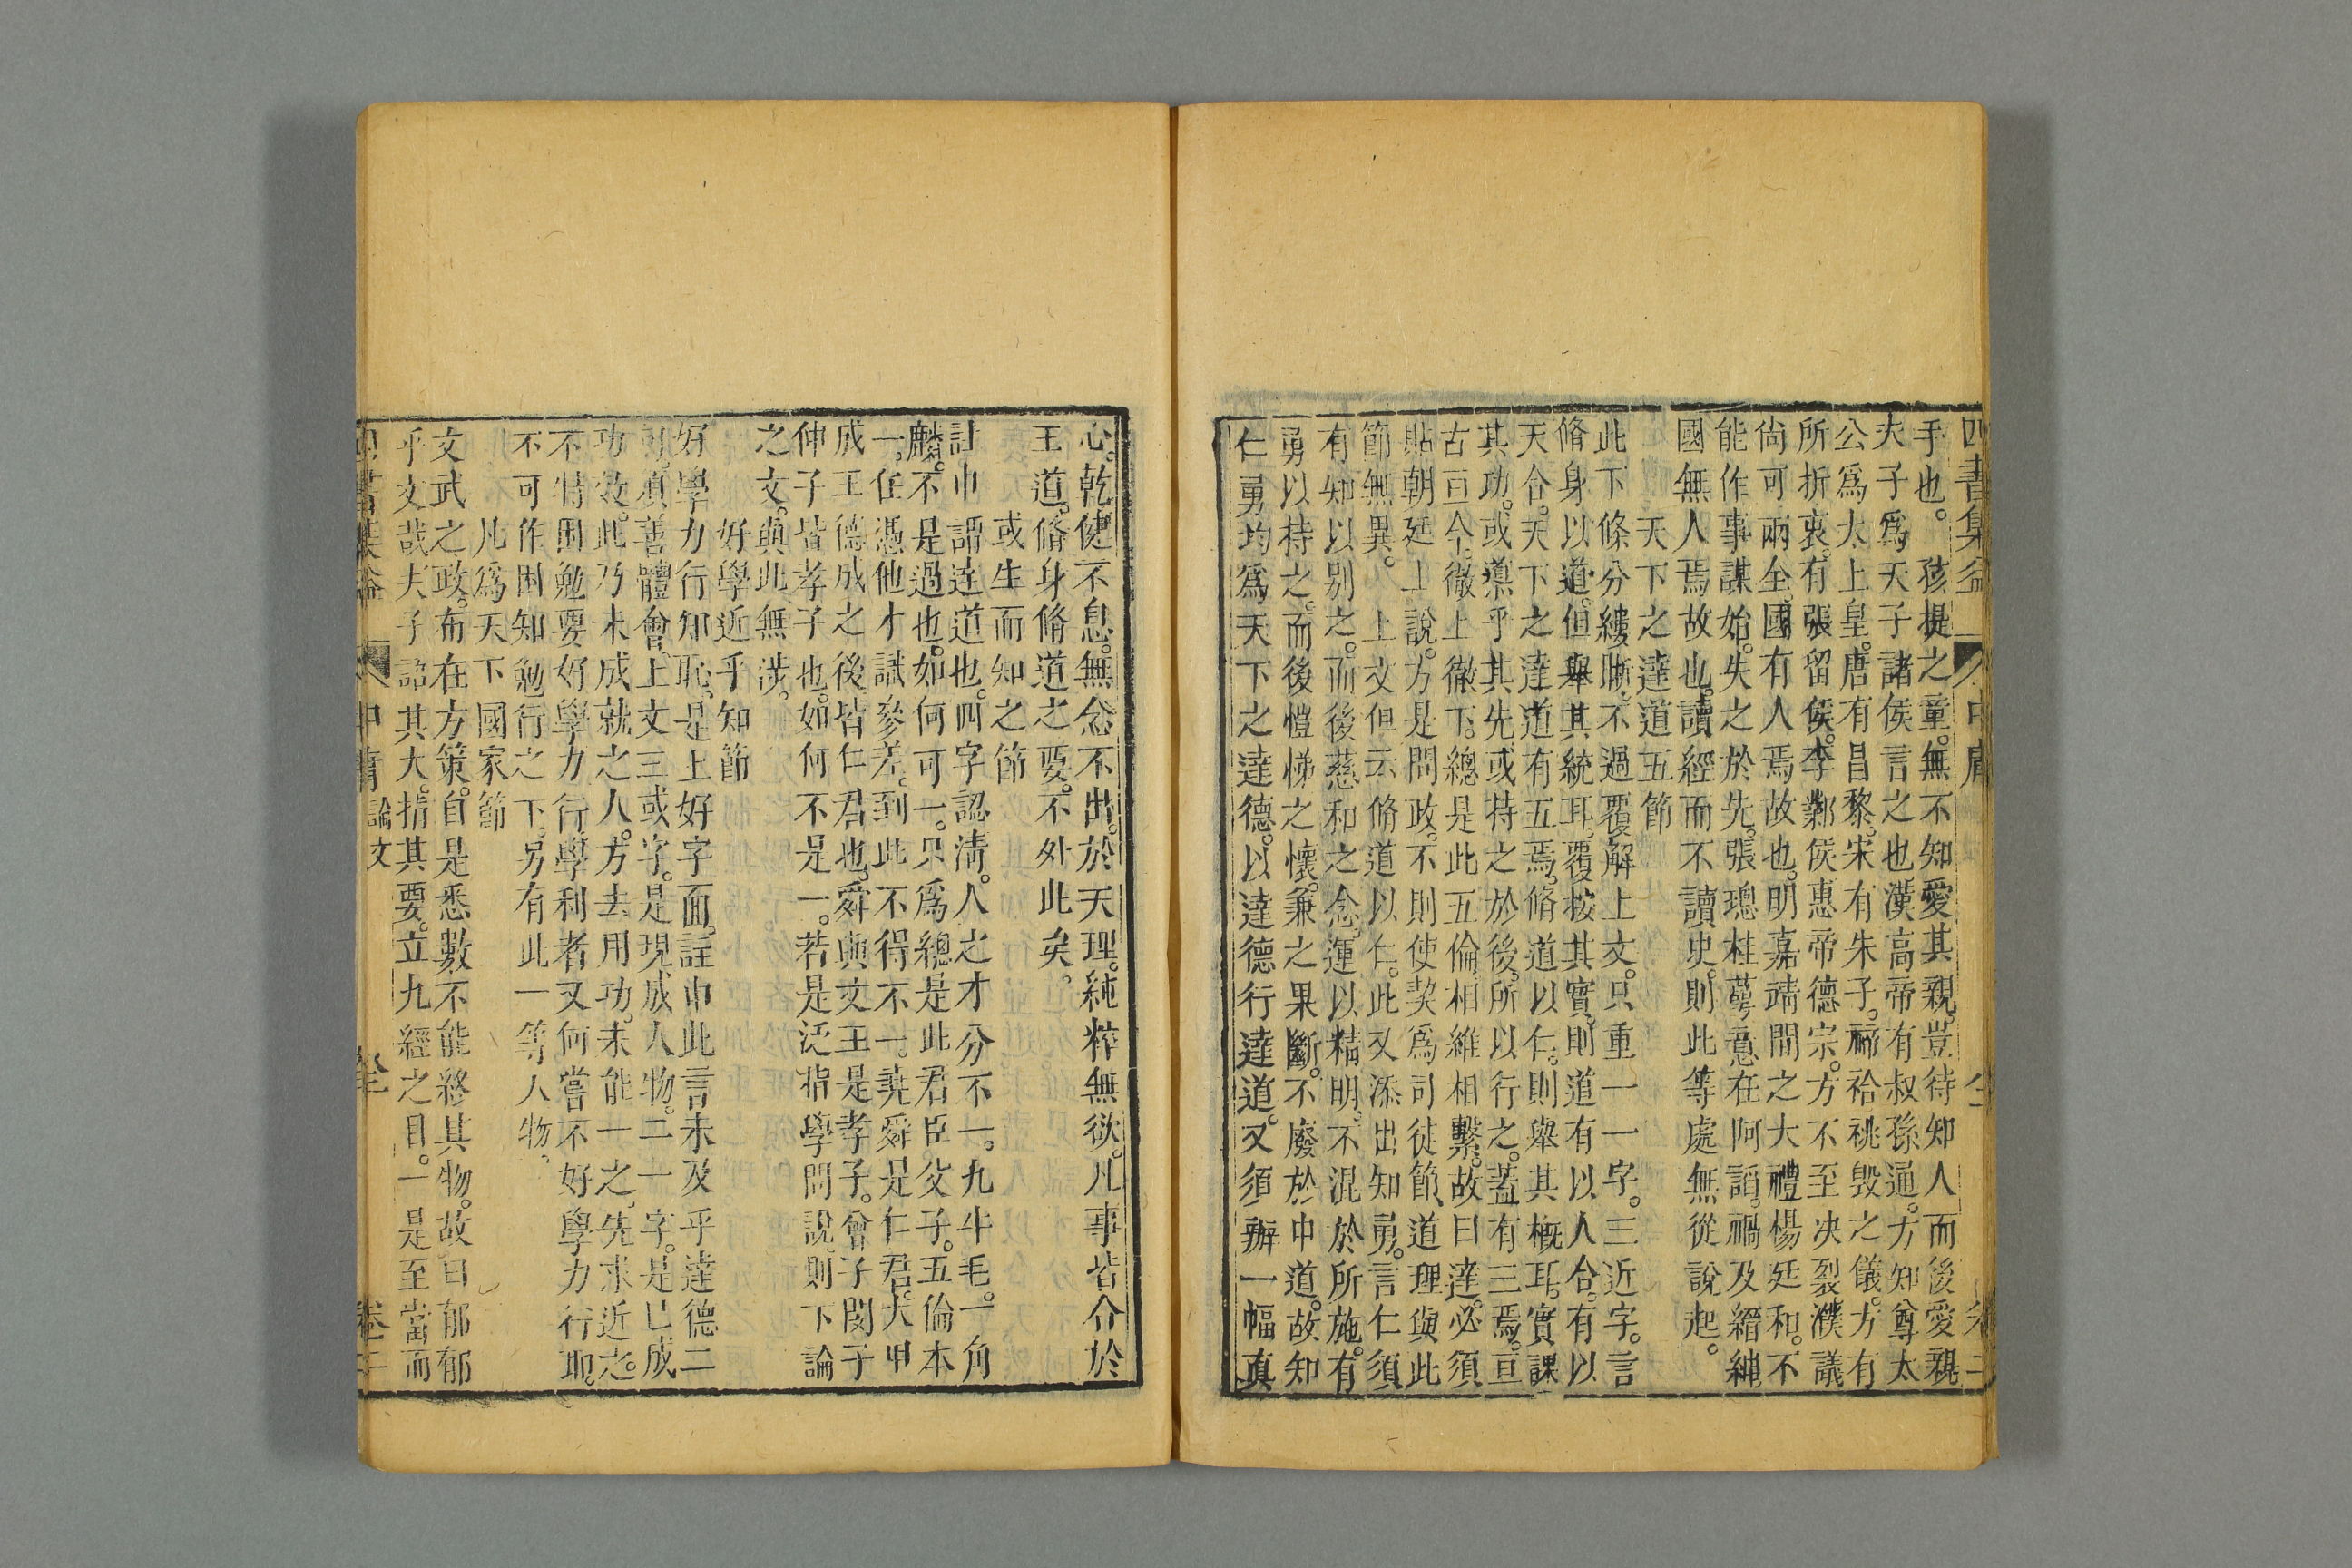 四書集益 中庸 卷二
乎也。孩提之童。無不知愛其親。豈待知人而後愛親
夫子爲天子諸侯言之也漢高帝有叔孫通。方知尊太
公爲太上皇。唐有昌黎。宋有朱子。禘祫祧毀之儀。方有
所折衷。有張留侯。李鄴侯惠帝德宗。方不至决裂濮議
尚可兩全。國有人焉故也。明嘉靖間之大禮楊廷和。不
能作事謀始。失之於先。張璁桂萼意在阿謟。禍及縉紳
國無人焉故也。讀經而不讀史。則此等處無從說起。
天下之達道五節
此下條分縷晰。不過覆解上文。只重一一字。三近字。言
脩身以道。但舉其統耳。覆按其實。則道有以人合。有以
天合。天下之達道有五焉。脩道以仁。則舉其概耳。實課
其功。或導乎其先。或持之於後。所以行之。蓋有三焉。亘
古亘今。徹上徹下。總是此五倫。相維相繫。故曰達。必須
貼朝廷上說。方是問政。不則使契爲司徒節。道理與此
節無異。上文但云脩道以仁。此又添出知勇。言仁須
有知以別之。而後慈和之念。運以精明。不混於所施。有
勇以持之。而後愷悌之懷。兼之果斷。不廢於中道。故知
仁勇均爲天下之達德。以達德行達道。又須辦一幅真
心。乾健不息。無念不出。於天理。純粹無欲。凡事皆介於
王道。脩身脩道之要。不外此矣。
或生而知之節
註中謂達道也。四字認清。人之才分不一。九牛毛。一角
麟。不是過也。如何可一。只爲總是此君臣。父子。五倫本
一。任憑他才識參差。到此不得不一。堯舜是仁君。太甲
成王德成之後。皆仁君也。舜與文王是孝子。曾子閔子
仲子皆孝子也。如何不是一。若是泛指學問說。則下論
之文。與此無涉。
好學近乎知節
好學力行知恥。是上好字面。註中此言未及乎達德二
可。須善體會。上文三或字。是現成人物。二一字。是已成
功效。此乃未成就之人。方去用功。未能一之。先求近之。
不特困勉要好學力行。學利者又何嘗不好學力行耶。
不可作困知勉行之下。另有此一等人物。
凡爲天下國家節
文武之政。布在方策。自是悉數不能終其物。故曰郁郁
乎文哉夫子詔其大。揭其要。立九經之目。一是至當而
四書集益 中庸 論文 卷二